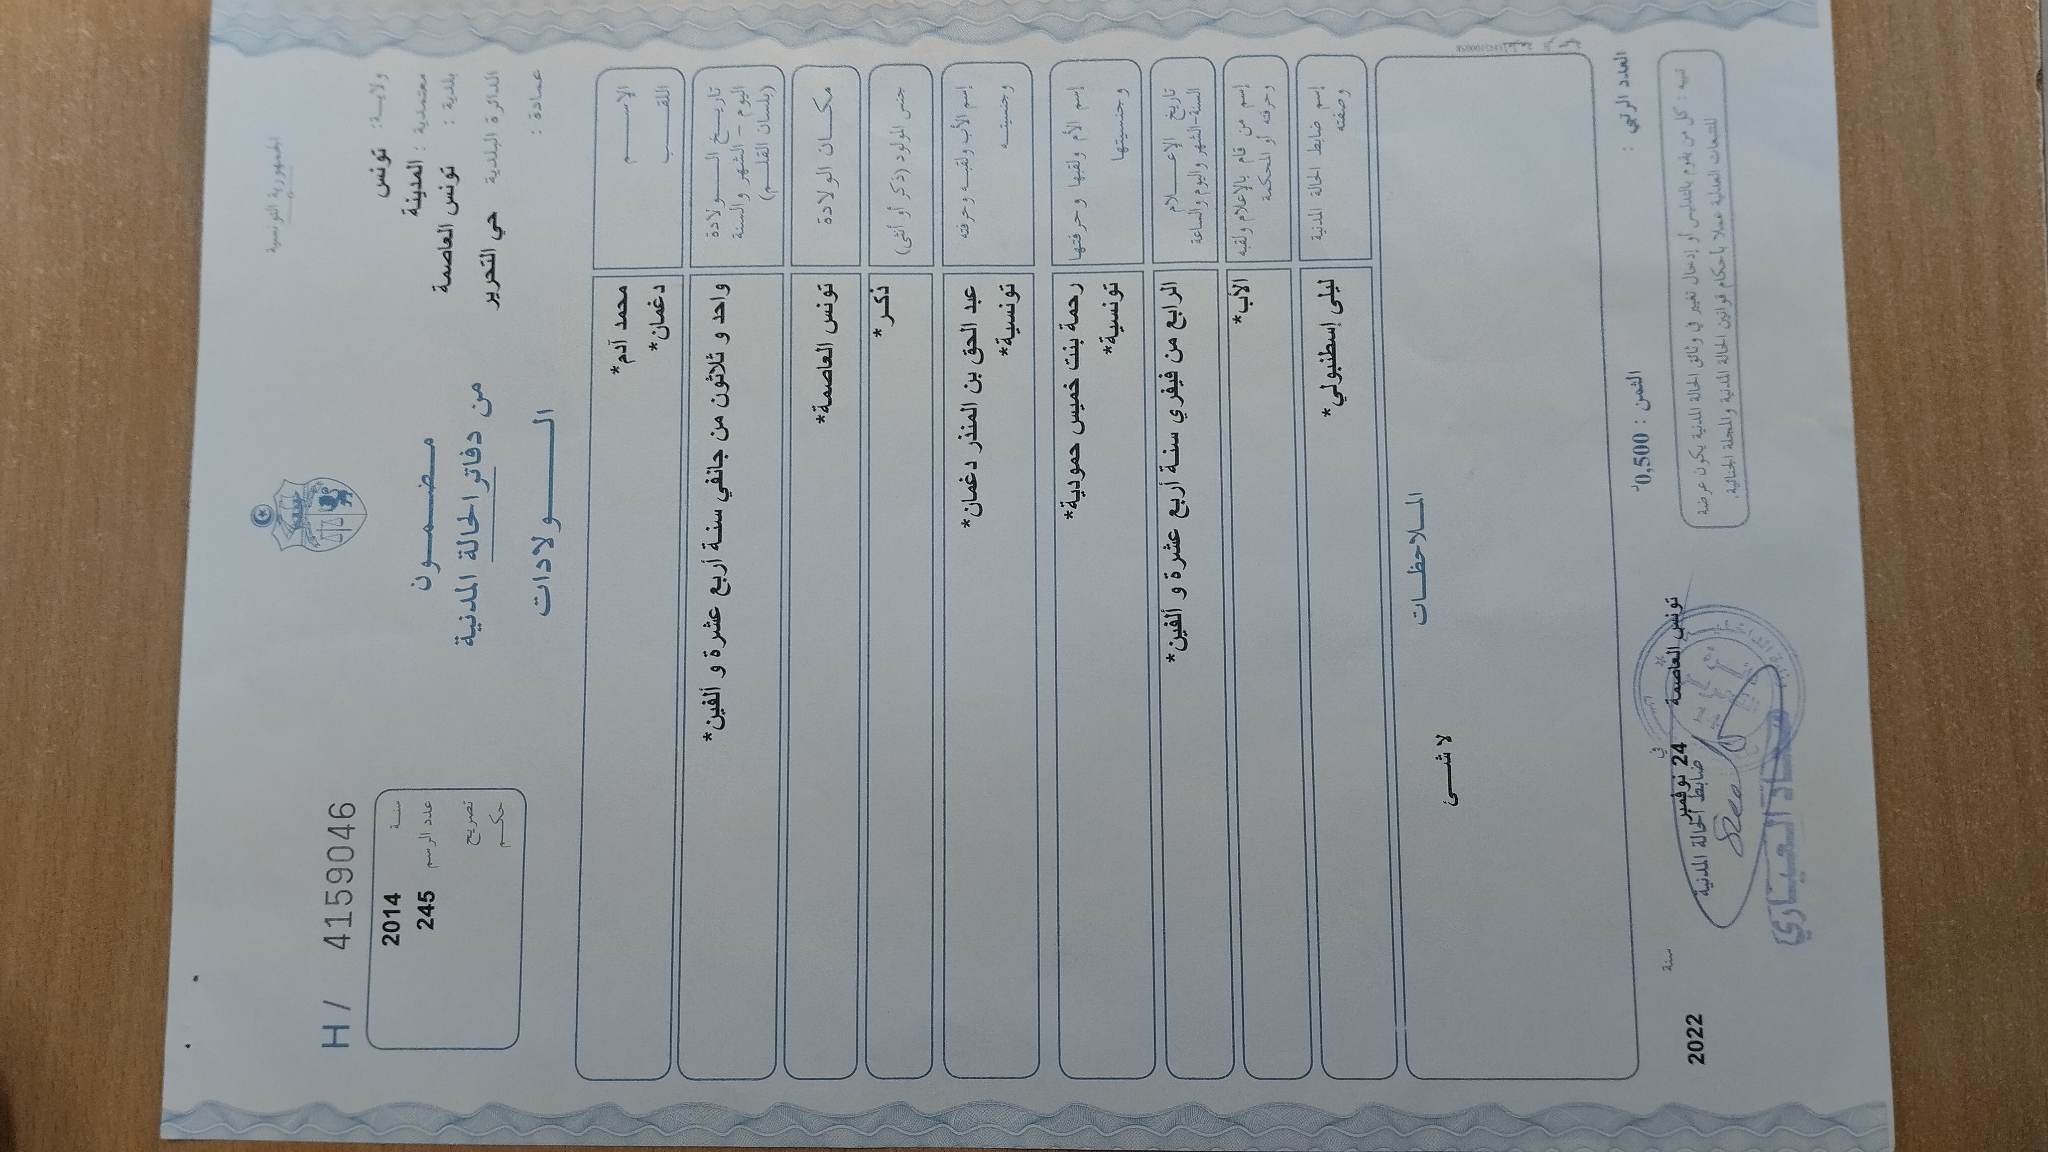 الجمهورية التونسية
ولاية : تونس
معتمدية : المدينة
بلدية : تونس العاصمة
الدائرة البلدية حي التحرير
عمادة :
مضمون
من دفاتر الحالة المدنية
الولادات
H / 4159046
سنة 2014
عدد الرسم 245
تصريح
حكم
الإسم محمد آدم*
اللقب دغمان*
تاريخ الولادة
اليوم - الشهر والسنة
(بلسان القلم)
واحد و ثلاثون من جانفي سنة أربع عشرة و ألفين*
مكان الولادة تونس العاصمة*
جنس المولود (ذكر أو أنثى) ذكر*
إسم الأب ولقبه وحرفته عبد الحق بن المنذر دغمان*
وجنسيته تونسية*
إسم الأم ولقبها وحرفتها رحمة بنت خميس حمودية*
وجنسيتها تونسية*
تاريخ الإعلام
السنة-الشهر واليوم والساعة
الرابع من فيفري سنة أربع عشرة و ألفين*
إسم من قام بالإعلام ولقبه الأب*
وحرفته أو المحكمة
إسم ضابط الحالة المدنية ليلى إسطنبولي*
وصفته
الملاحظات
لا شئ
العدد الرتبي :
الثمن : 0,500د
تونس العاصمة في 24 نوفمبر سنة 2022
ضابط الحالة المدنية
تنبيه : كل من يقوم بالتدليس أو إدخال تغيير في وثائق الحالة المدنية يكون عرضة
للتتبعات العدلية عملا بأحكام قوانين الحالة المدنية والمجلة الجنائية.